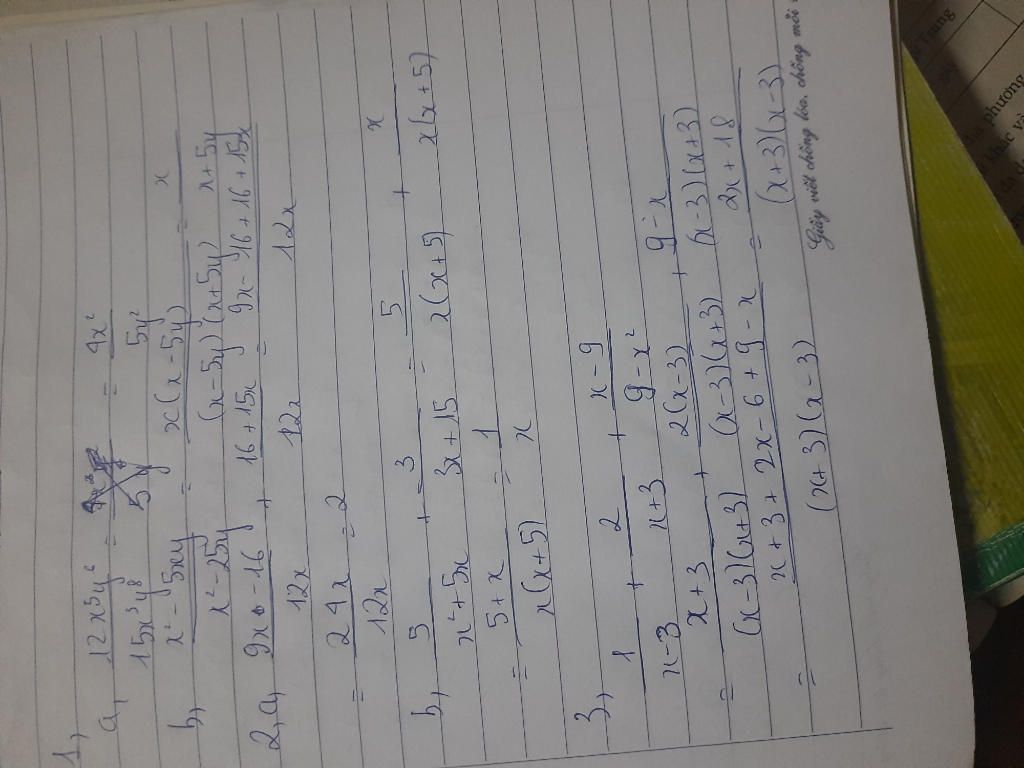 1,
a, 12x⁵y⁶/15x³y⁸ = 4x²/5y²
b, x² - 5xy/x² - 25y = x(x - 5y)/(x - 5y)(x + 5y) = x/x + 5y
2, a, 9x - 16/12x + 16 + 15x/12x = 9x - 16 + 16 + 15x/12x
= 24x/12x = 2
b, 5/x² + 5x + 3/3x + 15 = 5/x(x + 5) + x/x(x + 5)
= 5 + x/x(x + 5) = 1/x
3,
1/x - 3 + 2/x + 3 + x - 9/9 - x²
= x + 3/(x - 3)(x + 3) + 2(x - 3)/(x - 3)(x + 3) + 9 - x/(x - 3)(x + 3)
= x + 3 + 2x - 6 + 9 - x/(x + 3)(x - 3) = 2x + 18/(x + 3)(x - 3)
Giấy viết chống lóa, chống mỏi
Trung
phương
khác và